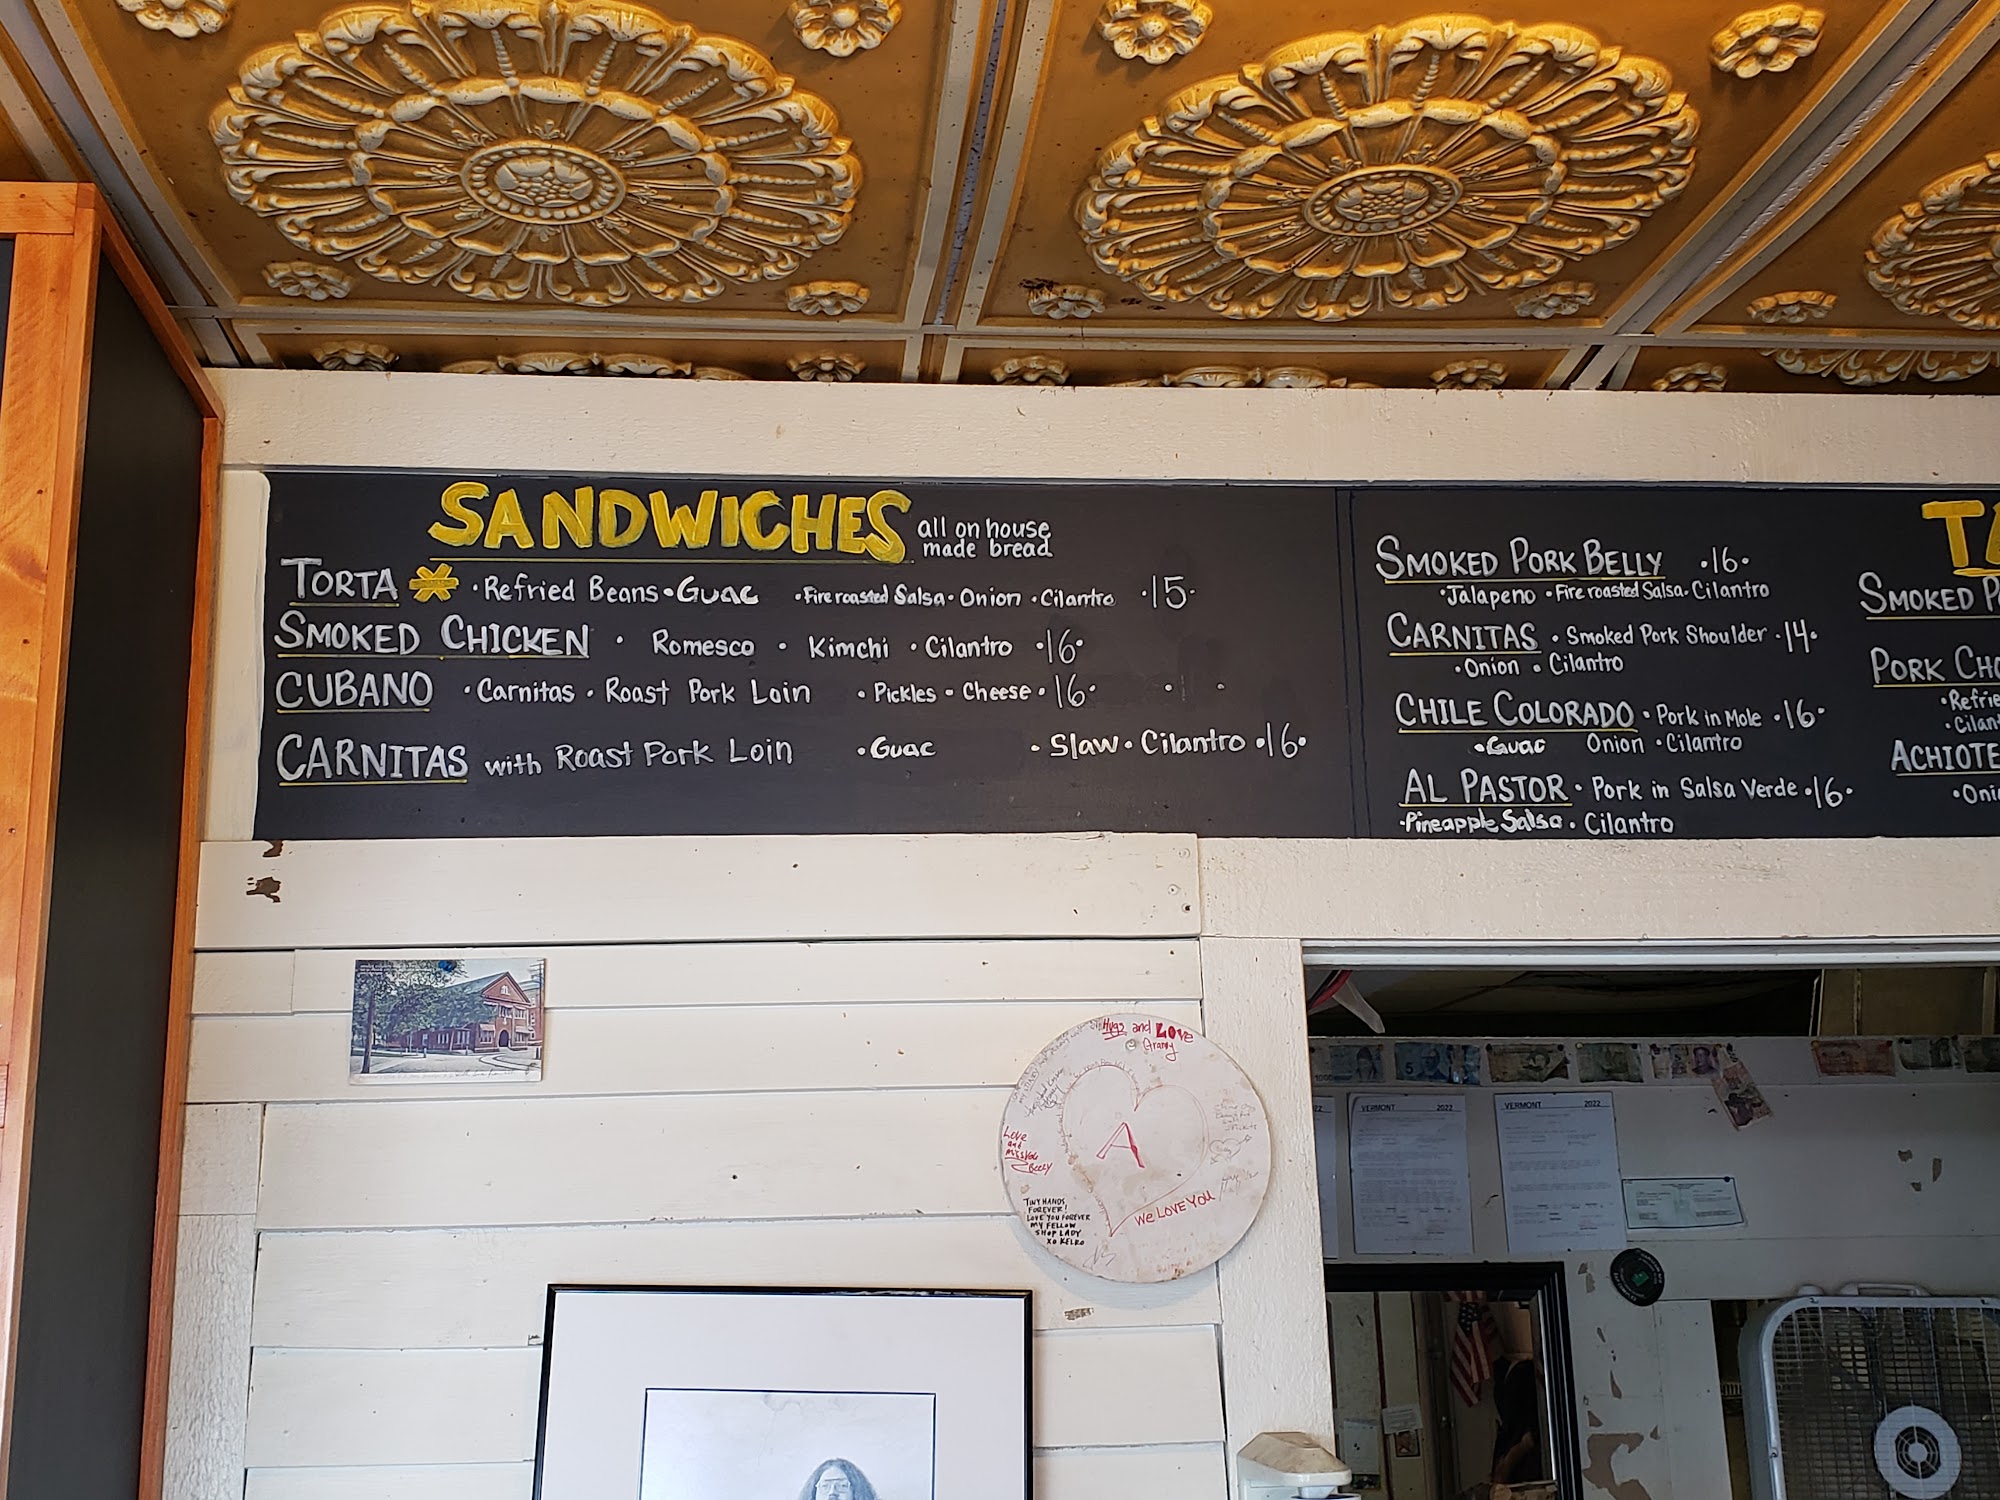 SANDWICHES all on house
made bread
TORTA * · Refried Beans · Guac · Fire roasted Salsa · Onion · Cilantro · 15 ·
SMOKED CHICKEN · Romesco · Kimchi · Cilantro · 16 ·
CUBANO · Carnitas · Roast Pork Loin · Pickles · Cheese · 16 ·
CARNITAS with Roast Pork Loin · Guac · Slaw · Cilantro · 16 ·
SMOKED PORK BELLY · 16 ·
· Jalapeno · Fire roasted Salsa · Cilantro
CARNITAS · Smoked Pork Shoulder · 14 ·
· Onion · Cilantro
CHILE COLORADO · Pork in Mole · 16 ·
· Guac Onion · Cilantro
AL PASTOR · Pork in Salsa Verde · 16 ·
· Pineapple Salsa · Cilantro
SMOKED
PORK
· Refrie
· Cilant
ACHIOTE
· Oni
Hugs and LOVE
Granny
A
Love
and
WE LOVE YOU
TINY HANDS,
FOREVER!
LOVE YOU FOREVER
MY FELLOW
SHOP LADY
XO KELRO
VERMONT 2022
VERMONT 2022